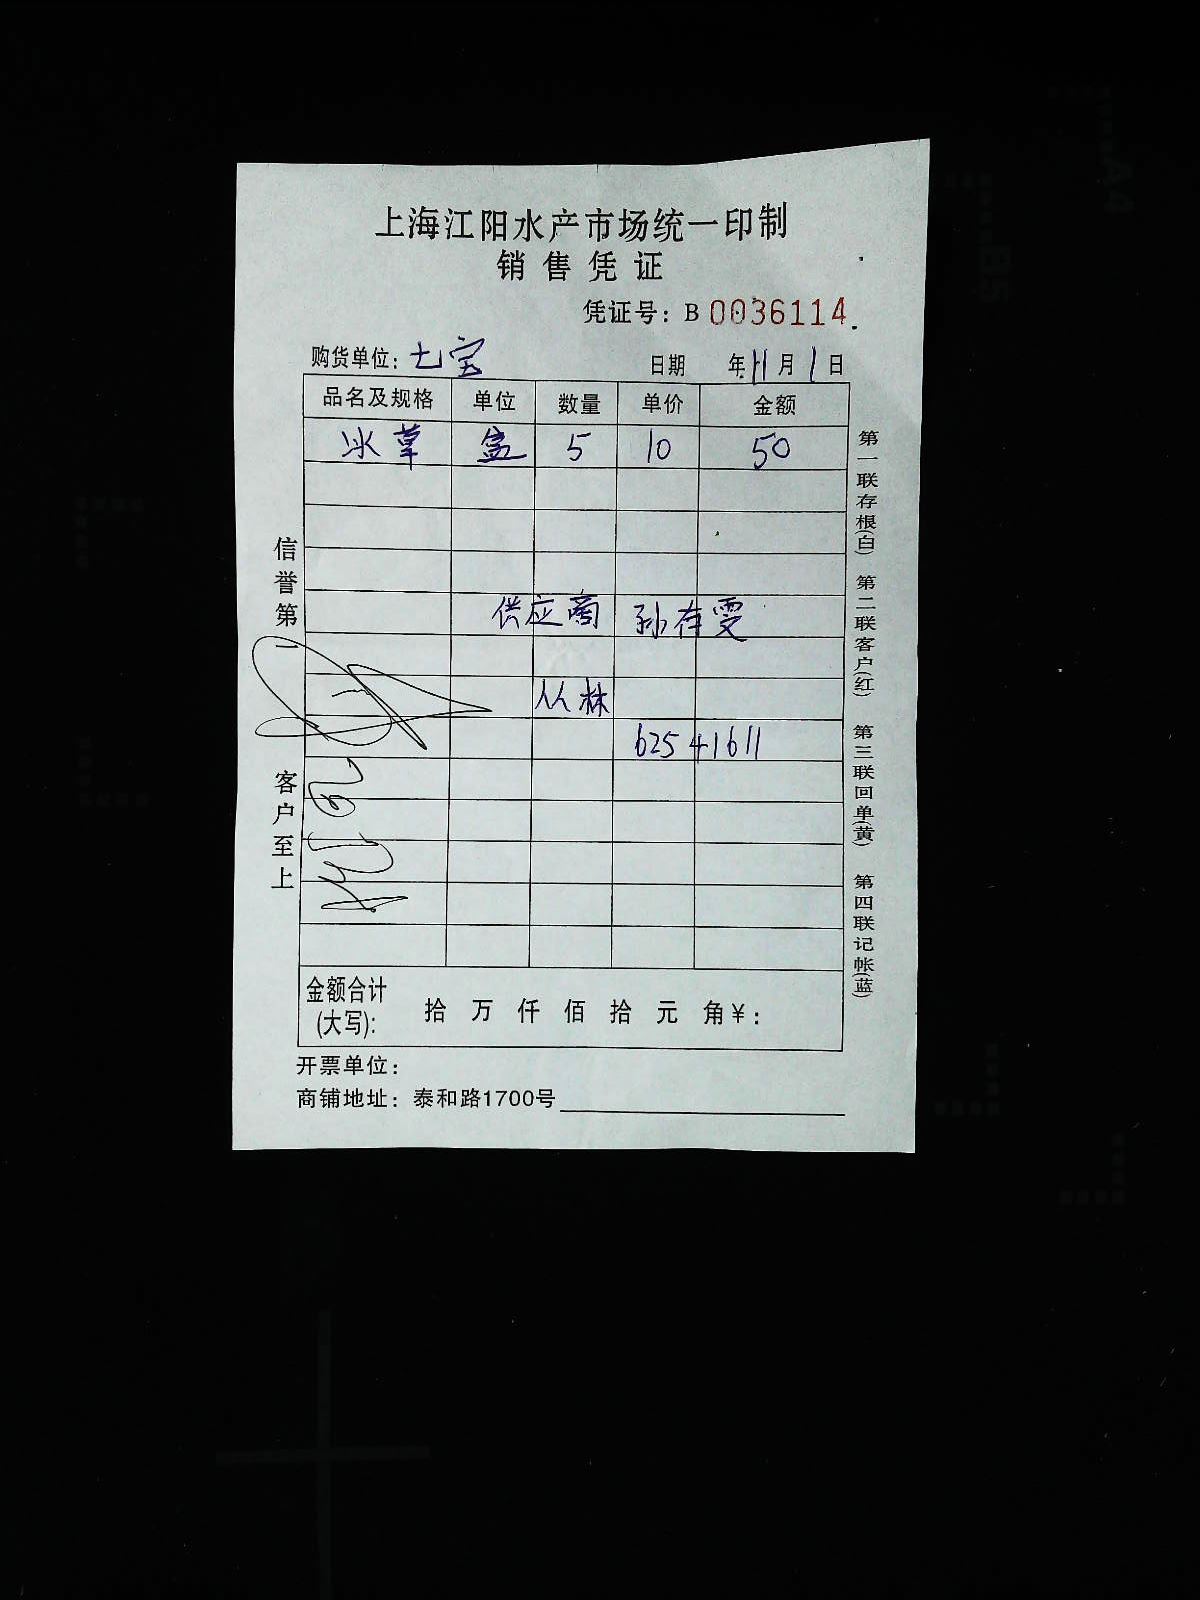 上海江阳水产市场统一印制
销售凭证
凭证号：B 0036114
购货单位：七宝 日期 年11月1日
品名及规格 单位 数量 单价 金额
冰草 盒 5 10 50
供应商 孙存雯
从林
62541611
金额合计(大写)： 拾 万 仟 佰 拾 元 角 ¥：
开票单位：
商铺地址：泰和路1700号
信誉第一 客户至上
第一联存根(白) 第二联客户(红) 第三联回单(黄) 第四联记帐(蓝)